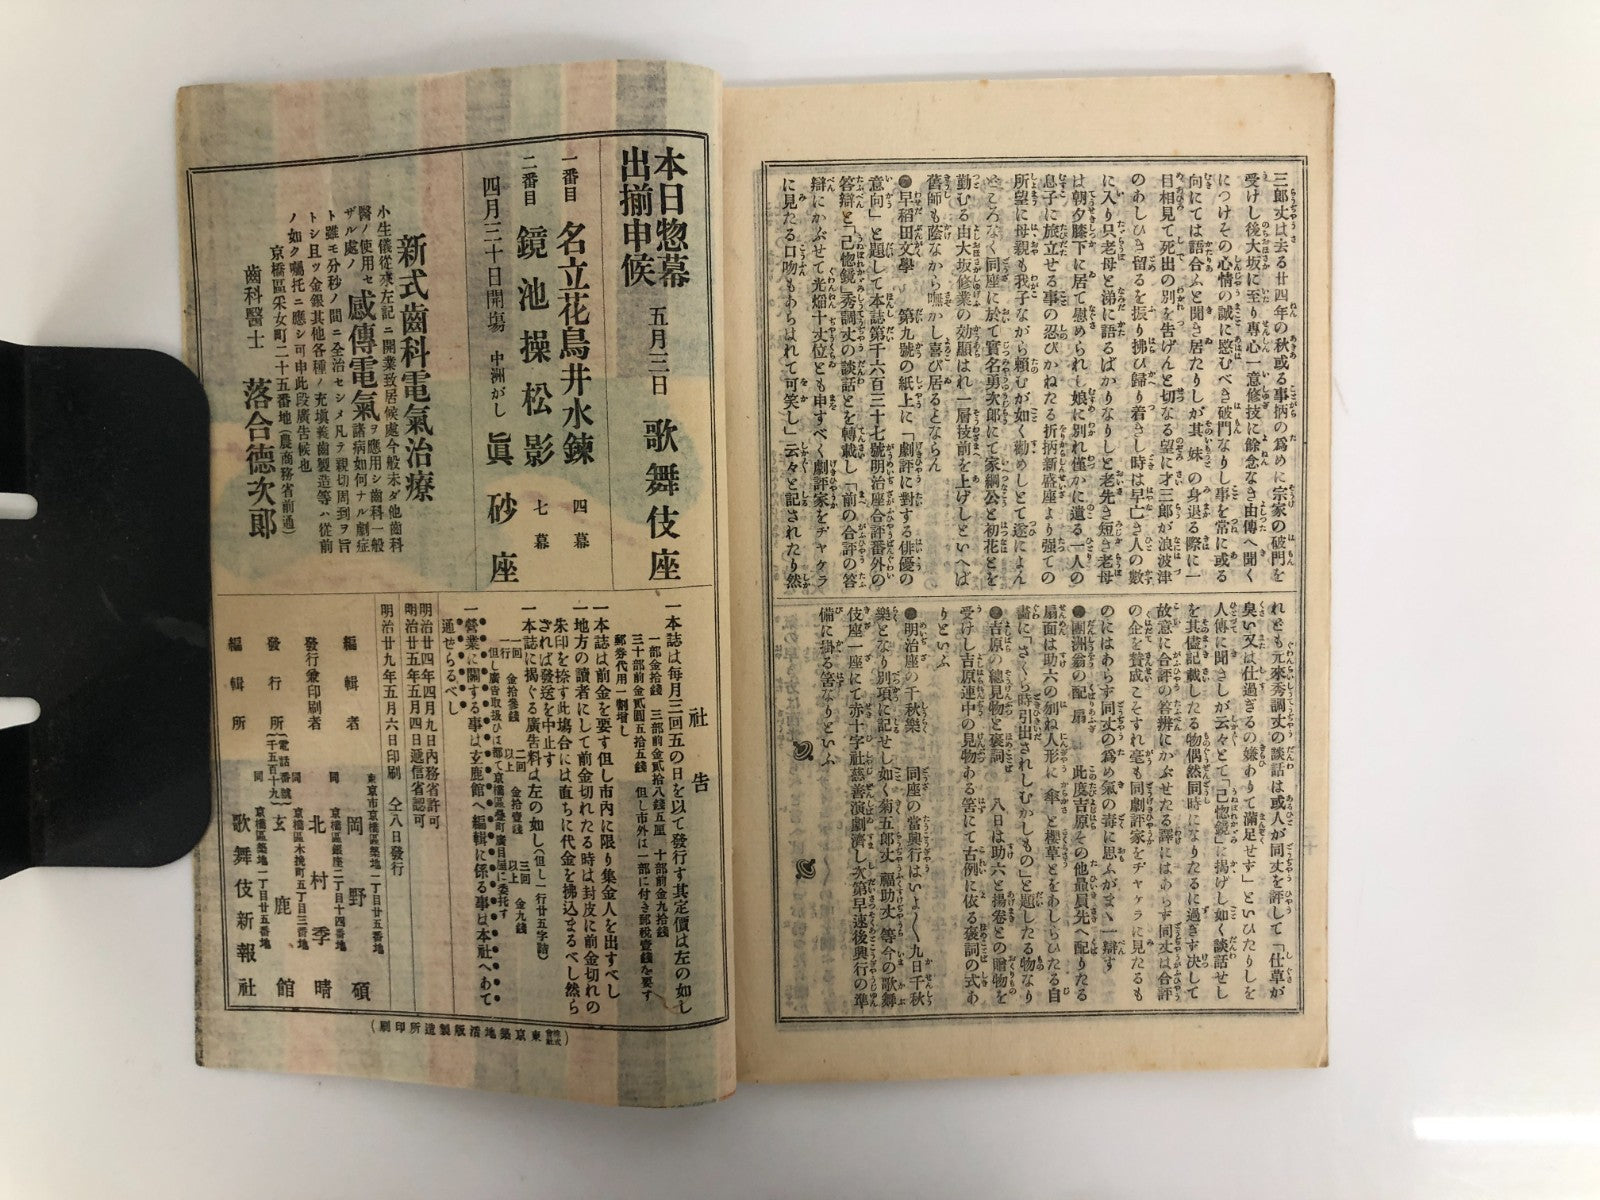 三郎丈は去る廿四年の秋或る事柄の爲めに宗家の破門を
受けし後大坂に至り專心一意修技に餘念なき由傳へ聞く
につけその心情の誠に愍むべき破門なりし事を常に或る
向にては語合ふと聞き居たりしが其 妹 の身退る際に一
目相見て死出の別を告げんと切なる望に才三郎が浪波津
のあしひき留るを振り拂ひ歸り着きし時は早亡き人の數
に入り只老母と涕に語るばかりなりしと老先き短き老母
は朝夕膝下に居て慰められし娘に別れ僅かに遺る一人の
息子に旅立せる事の忍びかねたる折柄新盛座より强ての
所望に母親も我子ながら賴むが如く勸めしとて遂によん
どころなく同座に於て實名勇次郎にて家綱公と初花とを
勤むる由大坂修業の効顯はれ一層技前を上げしといへば
舊師も蔭なから嘸かし喜び居るとならん
●早稻田文學 第九號の紙上に「劇評に對する俳優の
意向」と題して本誌第千六百三十七號明治座合評番外の
答辯と「己惚鏡」秀調丈の談話とを轉載し「前の合評の答
辯にかぶせて光㷔十丈位とも申すべく劇評家をヂャクラ
に見たる口吻もあらはれて可笑し」云々と記されたり然
れども元來秀調丈の談話は或人が同丈を評して「仕草が
臭い又は仕過ぎるの嫌ありて滿足せず」といひたりしを
人傳に聞きしが云々とて「己惚鏡」に揚げし如く談話せし
を其儘記載したる物偶然同時になりたるに過ぎず決して
故意に合評の答辨にかぶせたる譯にはあらず同丈は合評
の企を贊成こそすれ毫も同劇評家をヂャクラに見たるも
のにはあらず同丈の爲め氣の毒に思ふがまゝ一辯す
●團洲翁の配 扇 此度吉原その他最員先へ配りたる
扇面は助六の刎ね人形に 傘 と櫻草とをあしらひたる自
畵に「さくら時引出されしむかしもの」と題したる物なり
●吉原の總見物と褒詞 八日は助六と揚卷との贈物を
受けし吉原連中の見物ある筈にて古例に依る褒詞の式あ
りといふ
●明治座の千秋樂 同座の當興行はいよ〱九日千秋
樂となり別項に記せし如く菊五郎丈 福助丈 等今の歌舞
伎座一座にて赤十字社慈善演劇濟し次第早速後興行の準
備に掛る筈なりといふ
本日惣幕
出揃申候
五月三日 歌舞伎座
一番目 名立花鳥井水鍊 四幕
二番目 鏡池操松影 七幕
四月三十日開塲 中洲がし 眞砂座
新式齒科電氣治療
小生儀從來左記ニ開業致居候處今般未ダ他齒科
醫ノ使用セ
ザル處ノ 感傳電氣ヲ應用シ齒科一般
諸病如何ナル劇症
ト雖モ分秒ノ間ニ全治セシメ凡テ親切周到ヲ旨
トシ且ツ金銀其他各種ノ充塡義齒製造等ハ從前
ノ如ク囑托ニ應シ可申此段廣告候也
京橋區采女町二十五番地(農商務省前通)
齒科醫士 落合德次郞
社告
一本誌は每月三回五の日を以て發行す其定價は左の如し
一部金拾錢 三部前金貳拾八錢五厘 十部前金九拾錢
三十部前金貳圓五拾五錢 但し市外は一部に付き郵稅壹錢を要す
郵券代用一割增
一本誌は前金を要す但し市內に限り集金人を出すべし
一地方の讀者にして前金切れたる時は封皮に前金切れの
朱印を捺す此塲合には直ちに代金を拂込まるべし然ら
ざれば發送を中止す
一本誌に揭ぐる廣告料は左の如し(但し一行廿五字詰)
一回
一行 金拾參錢 二回
以上 金拾壹錢 三回
以上 金九錢
但し廣告取扱ひは都て京橋區疊町廣目屋に委托す
一營業に關する事は玄鹿館へ編輯に係る事は本社へあて
通せらるべし
明治廿四年四月九日內務省許可
明治廿五年五月四日遞信省認可
明治廿九年五月六日印刷 仝八日發行
東京市京橋區築地一丁目廿五番地
編輯者 岡野碩
同 京橋區銀座二丁目十四番地
發行兼印刷者 北村季晴
同 京橋區木挽町五丁目三番地
發行所(電話番號千五百十九) 玄鹿館
同 京橋區築地一丁目廿五番地
編輯所 歌舞伎新報社
(株式會社東京築地活版製造所印刷)